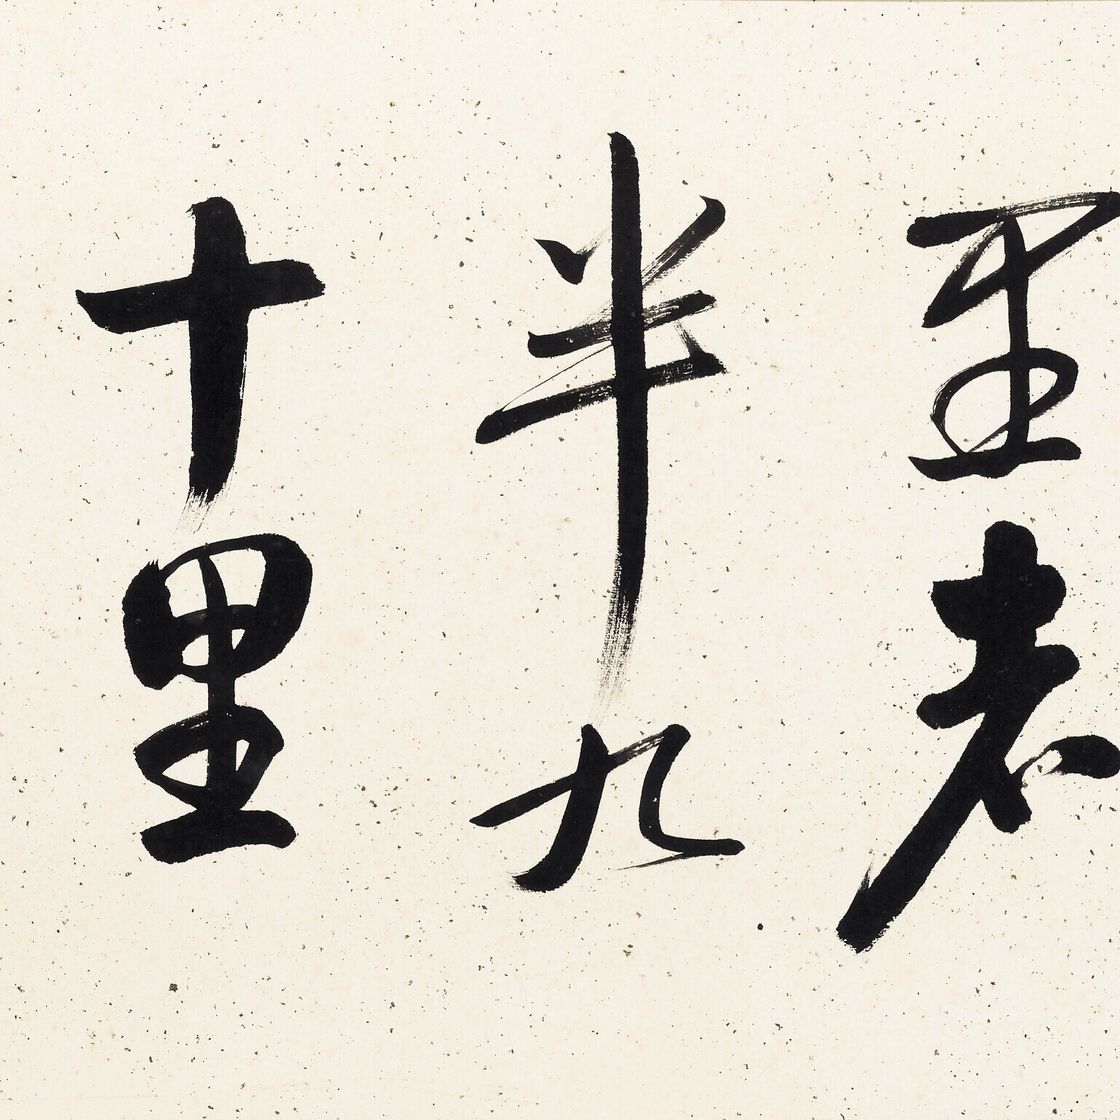 里者
半九
十里